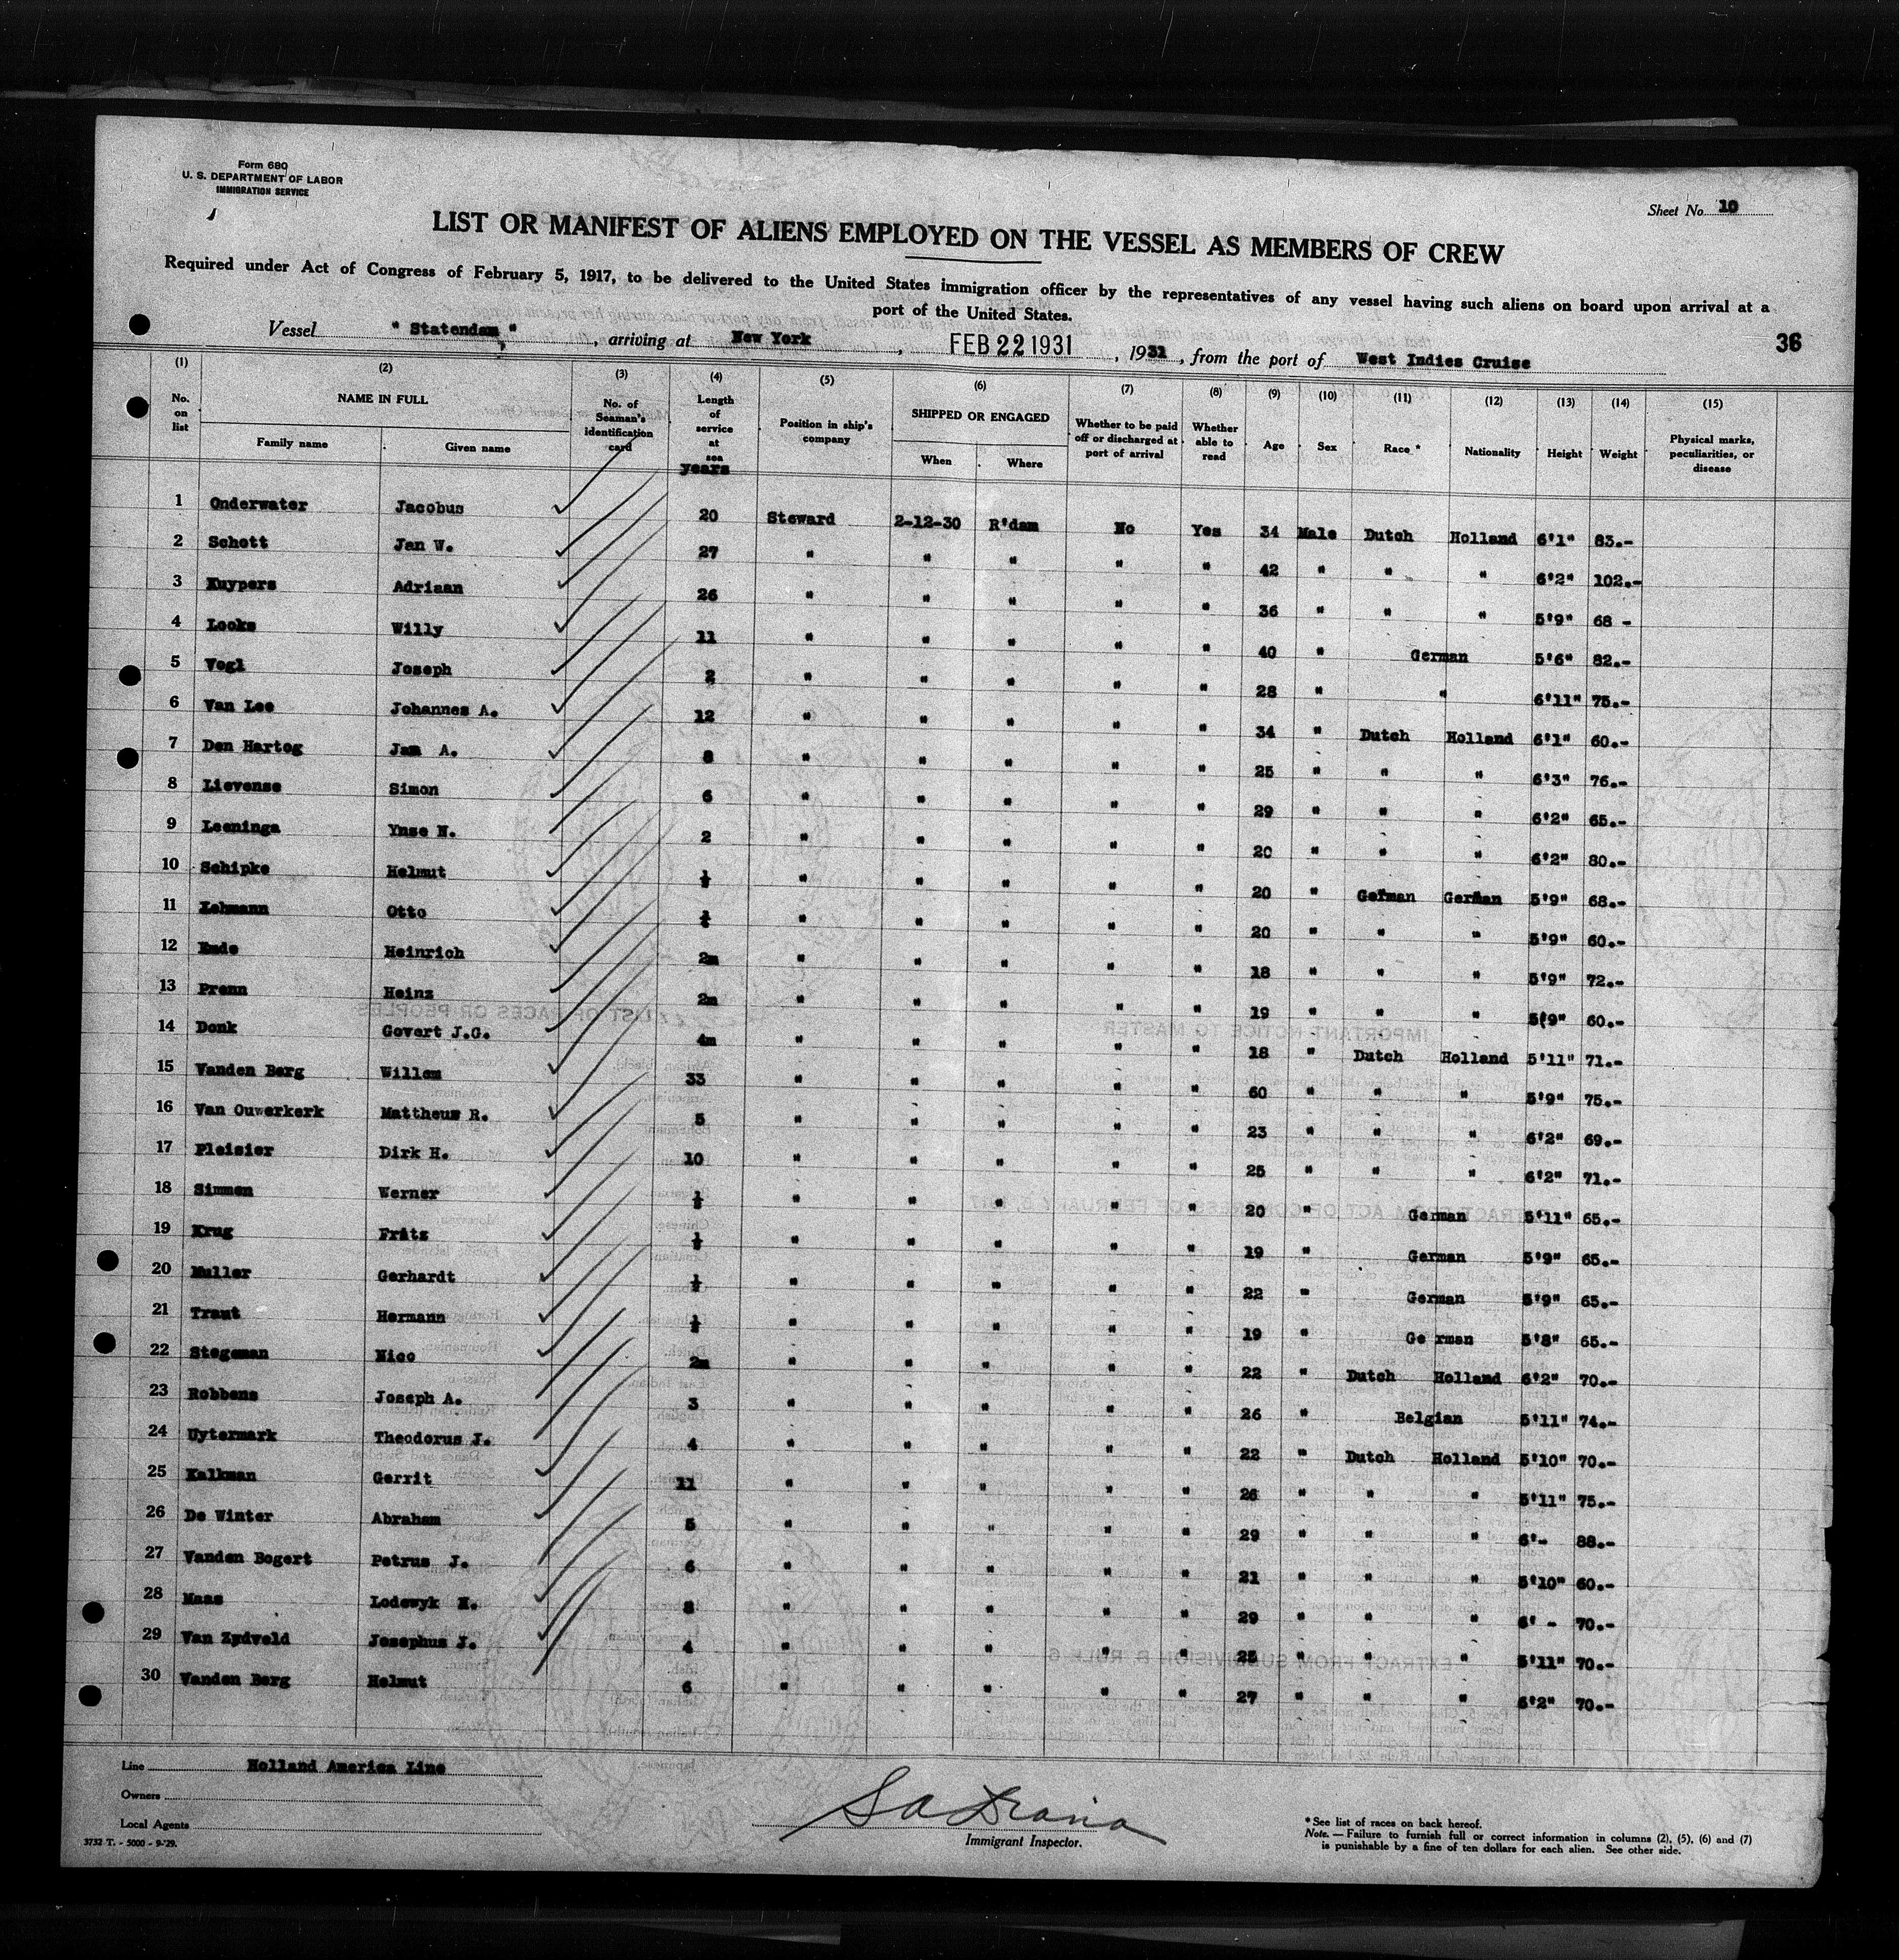 Form 680
U. S. DEPARTMENT OF LABOR
IMMIGRATION SERVICE
Sheet No. 10
LIST OR MANIFEST OF ALIENS EMPLOYED ON THE VESSEL AS MEMBERS OF CREW
Required under Act of Congress of February 5, 1917, to be delivered to the United States immigration officer by the representatives of any vessel having such aliens on board upon arrival at a
port of the United States.
Vessel "Statendam", arriving at New York, FEB 22 1931, 1931, from the port of West Indies Cruise
36
(1) (2) (3) (4) (5) (6) (7) (8) (9) (10) (11) (12) (13) (14) (15)
No. on list NAME IN FULL Family name Given name No. of Seaman's identification card Length of service at sea years Position in ship's company SHIPPED OR ENGAGED When Where Whether to be paid off or discharged at port of arrival Whether able to read Age Sex Race * Nationality Height Weight Physical marks, peculiarities, or disease
1 Onderwater Jacobus 20 Steward 2-12-30 R'dam No Yes 34 Male Dutch Holland 6'1" 83.-
2 Schott Jan W. 27 " " " " " 42 " " " 6'2" 102.-
3 Kuypers Adriaan 26 " " " " " 36 " " " 5'9" 68 -
4 Looks Willy 11 " " " " " 40 " German 5'6" 82.-
5 Vogl Joseph 2 " " " " " 28 " " 6'11" 75.-
6 Van Lee Johannes A. 12 " " " " " 34 " Dutch Holland 6'1" 60.-
7 Den Hartog Jan A. 8 " " " " " 25 " " " 6'3" 76.-
8 Lievense Simon 6 " " " " " 29 " " " 6'2" 65.-
9 Leeninga Ynse N. 2 " " " " " 20 " " " 6'2" 80.-
10 Schipke Helmut ½ " " " " " 20 " German German 5'9" 68.-
11 Lehmann Otto ½ " " " " " 20 " " " 5'9" 60.-
12 Ende Heinrich 2m " " " " " 18 " " " 5'9" 72.-
13 Prenn Heinz 2m " " " " " 19 " " " 5'9" 60.-
14 Donk Govert J.G. 4m " " " " " 18 " Dutch Holland 5'11" 71.-
15 Vanden Berg Willem 33 " " " " " 60 " " " 5'9" 75.-
16 Van Ouwerkerk Mattheus R. 5 " " " " " 23 " " " 6'2" 69.-
17 Pleisier Dirk H. 10 " " " " " 25 " " " 6'2" 71.-
18 Simmen Werner ½ " " " " " 20 " German 5'11" 65.-
19 Krug Fritz ½ " " " " " 19 " German 5'9" 65.-
20 Muller Gerhardt ½ " " " " " 22 " German 5'9" 65.-
21 Traut Hermann ½ " " " " " 19 " Ge rman 5'8" 65.-
22 Stegeman Nico 2m " " " " " 22 " Dutch Holland 6'2" 70.-
23 Robbens Joseph A. 3 " " " " " 26 " Belgian 5'11" 74.-
24 Uytermark Theodorus J. 4 " " " " " 22 " Dutch Holland 5'10" 70.-
25 Kalkman Gerrit 11 " " " " " 26 " " " 5'11" 75.-
26 De Winter Abraham 5 " " " " " 29 " " " 6'- 88.-
27 Vanden Bogert Petrus J. 6 " " " " " 21 " " " 5'10" 60.-
28 Maas Lodewyk H. 8 " " " " " 29 " " " 6' - 70.-
29 Van Zydveld Josephus J. 4 " " " " " 25 " " " 5'11" 70.-
30 Vanden Berg Helmut 6 " " " " " 27 " " " 6'2" 70.-
Line Holland America Line
Owners
Local Agents
3732 T. - 5000 - 9-'29.
Immigrant Inspector.
* See list of races on back hereof.
Note. — Failure to furnish full or correct information in columns (2), (5), (6) and (7)
is punishable by a fine of ten dollars for each alien. See other side.